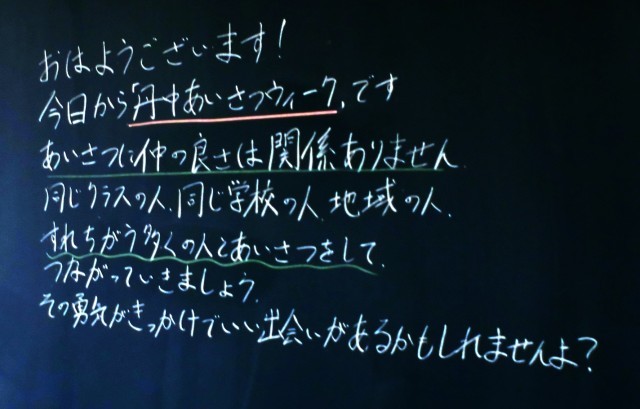 おはようございます!
今日から「丹中あいさつウィーク」です
あいさつに仲の良さは関係ありません.
同じクラスの人、同じ学校の人、地域の人、
すれちがう多くの人とあいさつをして、
つながっていきましょう.
その勇気がきっかけでいい出会いがあるかもしれませんよ?